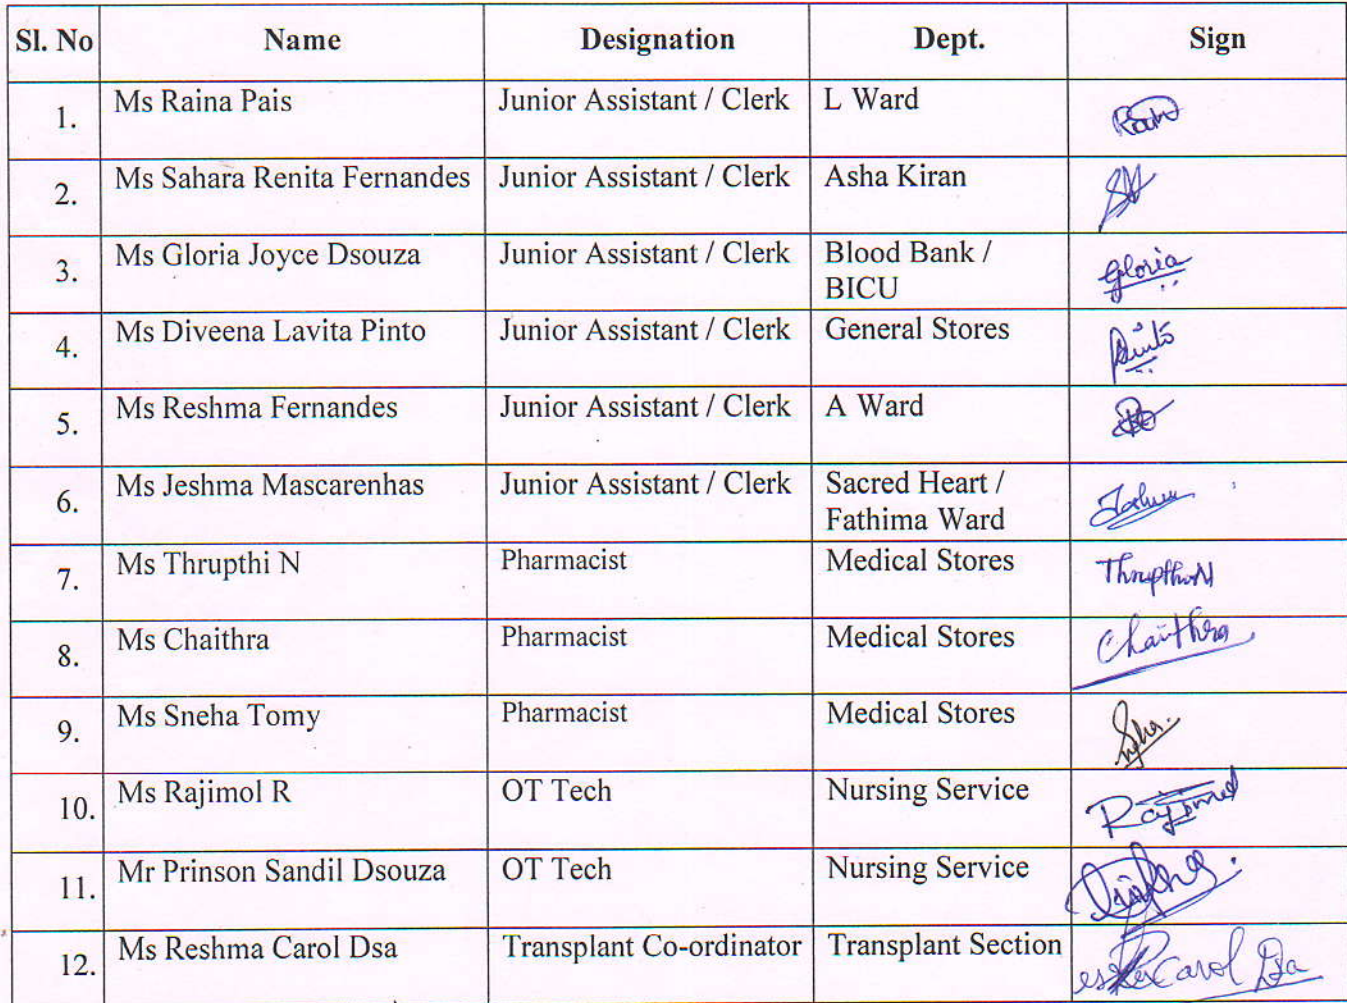 Sl. No Name Designation Dept. Sign
1. Ms Raina Pais Junior Assistant / Clerk L Ward
2. Ms Sahara Renita Fernandes Junior Assistant / Clerk Asha Kiran
3. Ms Gloria Joyce Dsouza Junior Assistant / Clerk Blood Bank / Gloria
BICU
4. Ms Diveena Lavita Pinto Junior Assistant / Clerk General Stores Pinto
5. Ms Reshma Fernandes Junior Assistant / Clerk A Ward
6. Ms Jeshma Mascarenhas Junior Assistant / Clerk Sacred Heart /
Fathima Ward
7. Ms Thrupthi N Pharmacist Medical Stores Thrupthi N
8. Ms Chaithra Pharmacist Medical Stores Chaithra
9. Ms Sneha Tomy Pharmacist Medical Stores
10. Ms Rajimol R OT Tech Nursing Service Rajimol
11. Mr Prinson Sandil Dsouza OT Tech Nursing Service
12. Ms Reshma Carol Dsa Transplant Co-ordinator Transplant Section Carol Dsa